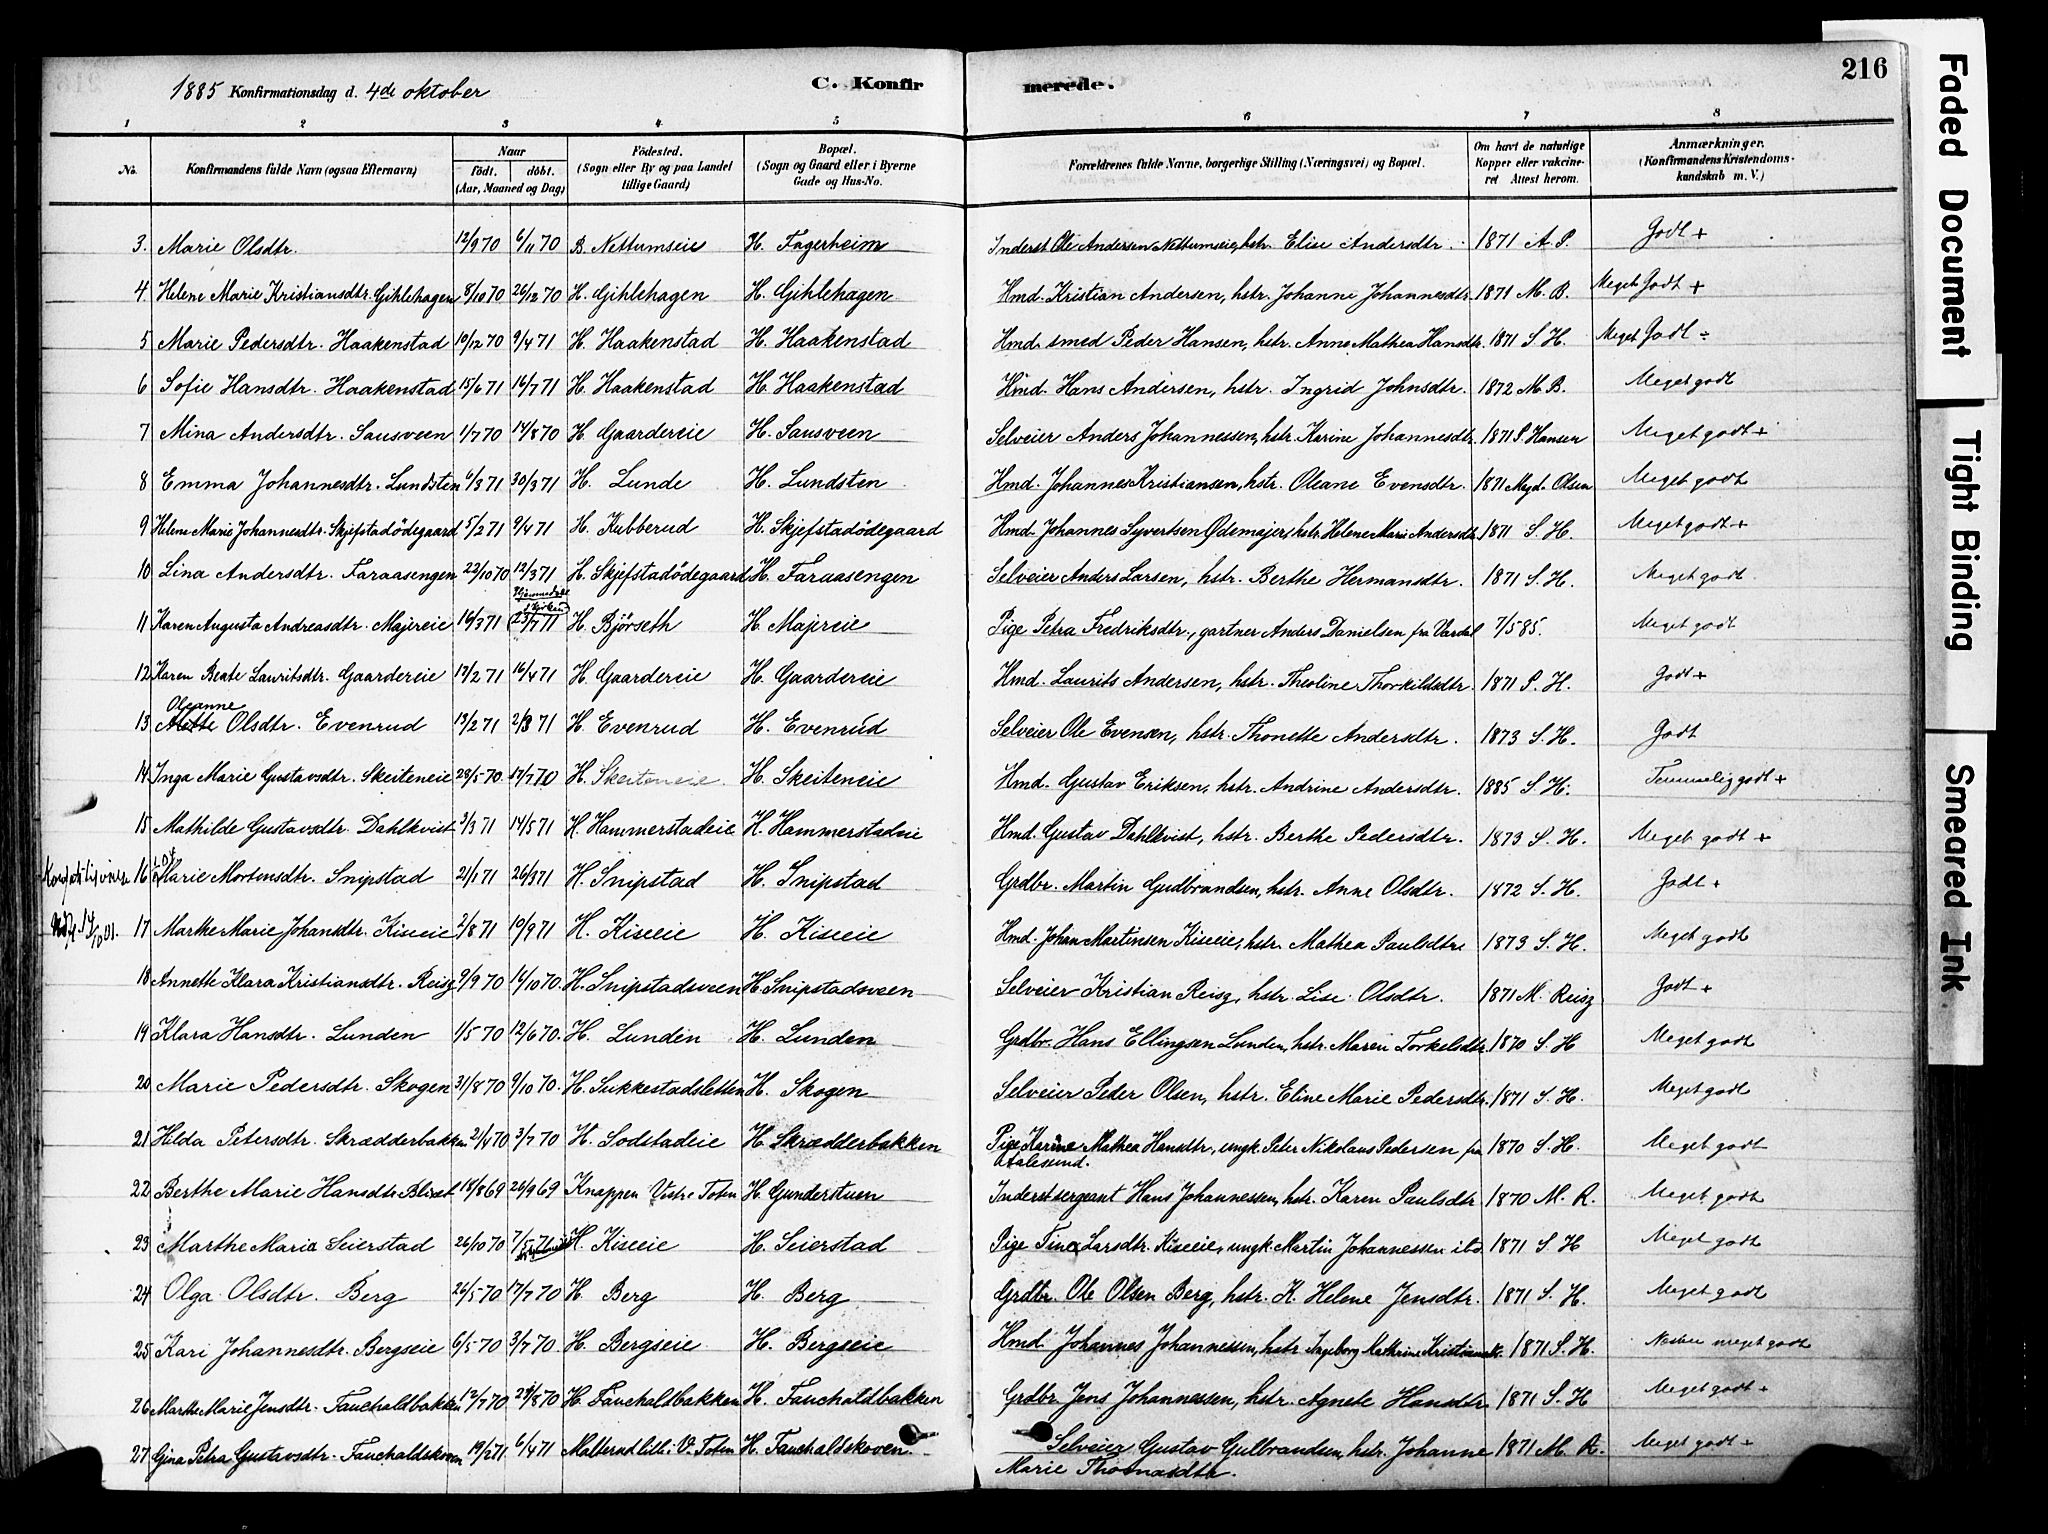 1885 Konfirmationsdag d. 4de oktober C. Konfirmerede. 216
1 2 3 4 5 6 7 8
No. Konfirmandens fulde Navn (ogsaa Efternavn) Naar födt. döbt. (Aar, Maaned og Dag) Födested. (Sogn eller By og paa Landet tillige Gaard) Bopæl. (Sogn og Gaard eller i Byerne Gade og Hus-No. Forældrenes fulde Navne, borgerlige Stilling (Næringsvei) og Bopæl. Om havt de naturlige Kopper eller vakcineret Attest herom. Anmærkninger. (Konfirmandens Kristendomskundskab m. V.)
3. Marie Olsdtr. 12/9 70 6/11 70 B. Nettumseie H. Fagerheim Inderst Ole Andersen Nettumseie, hstr. Elise Andersdtr. 1871 A. P. Godt +
4 Helene Marie Kristiansdtr. Gihlehagen 8/10 70 26/12 70 H. Gihlehagen H. Gihlehagen Hmd. Kristian Andersen, hstr. Johanne Johannesdtr. 1871 M. B. Meget Godt +
5 Marie Pedersdtr. Haakenstad 10/12 70 9/4 71 H. Haakenstad H. Haakenstad Hmd. smed Peder Hansen, hstr. Anne Mathea Hansdtr. 1871 S. H. Meget Godt ÷
6 Sofie Hansdtr. Haakenstad 15/6 71 16/7 71 H. Haakenstad H. Haakenstad Hmd. Hans Andersen, hstr. Ingrid Johnsdtr. 1872 M. B. Meget godt
7 Mina Andersdtr. Sausveen 1/7 70 14/8 70 H. Gaardereie H. Sausveen Selveier Anders Johannessen, hstr. Karine Johannesdtr. 1871 S. Hansen Meget godt +
8 Emma Johannesdtr. Lundsten 6/3 71 30/3 71 H. Lunde H. Lundsten Hmd. Johannes Kristiansen, hstr. Oleane Evensdtr. 1871 Magd. Olsen Meget godt
9 Helene Marie Johannesdtr. Skjefstadödegaard 5/2 71 9/4 71 H. Kubberud H. Skjefstadödegaard Hmd. Johannes Syvertsen Ödemajer, hstr. Helene Marie Andersdtr. 1871 S. H. Meget godt +
10 Lina Andersdtr. Faraasengen 22/10 70 12/3 71 H. Skjefstadödegaard H. Faraasengen Selveier Anders Larsen, hstr. Berthe Hermansdtr. 1871 S. H. Meget godt
11 Karen Augusta Andreasdtr. Majereie 16/3 71 23/7 71 H. Björseth H. Majereie Pige Petra Fredriksdtr., gartner Anders Danielsen fra Vardal 7/5 85. Meget godt
12 Karen Beate Lauritsdtr. Gaardereie 17/2 71 16/4 71 H. Gaardereie H. Gaardereie Hmd. Laurits Andersen, hstr. Theoline Thorkildsdtr. 1871 S. H. Godt +
Oleanne
13 Mette Olsdtr. Evenrud 13/2 71 2/8 71 H. Evenrud H. Evenrud Selveier Ole Evensen, hstr. Thonette Andersdtr. 1873 S. H. Godt
14 Inga Marie Gustavsdtr. Skeiteneie 28/5 70. 17/7 70 H. Skeiteneie. H. Skeiteneie Hmd. Gustav Eriksen, hstr. Andrine Andersdtr. 1885 S. H. Temmelig godt +
15 Mathilde Gustavsdtr. Dahlkvist 3/3 71 14/5 71 H. Hammerstadeie H. Hammerstadeie Hmd. Gustav Dahlkvist, hstr. Berthe Pedersdtr. 1873 S. H. Meget godt +
16 Marie Mortensdtr. Snipstad 21/1 71 26/3 71 H. Snipstad H. Snipstad Grdbr. Martin Gudbrandsen, hstr. Anne Olsdtr. 1872 S. H. Godt +
14/10 01. 17 Marthe Marie Johansdtr. Kiseeie 2/8 71 10/9 71 H. Kiseeie H. Kiseeie Hmd. Johan Martinsen Kiseeie, hstr. Mathea Paulsdtr. 1873 S. H. Meget godt
18 Annette Klara Kristiansdtr. Reisz 9/9 70 16/10 70. H. Snipstadsveen H. Snipstadsveen Selveier Kristian Reisz, hstr. Lise Olsdtr. 1871 M. Reisz Godt +
19 Klara Hansdtr. Lunden 1/5 70 12/6 70. H. Lunden H. Lunden Grdbr. Hans Ellingsen Lunden, hstr. Maren Torkelsdtr. 1870 S. H Meget godt
20 Marie Pedersdtr. Skogen 31/8 70 9/10 70. H. Sukkestadsletten H. Skogen Selveier Peder Olsen, hstr. Eline Marie Pedersdtr. 1871 S. H. Meget godt
21 Hilda Petersdtr. Skrædderbakken 21/4 70 3/7 70 H. Sodstadeie H. Skrædderbakken Pige Karine Mathea Hansdtr., ungk. Peter Nikolaus Pedersen fra 1870 S. H. Meget godt
Aalesund.
22 Berthe Marie Hansdtr. Blixet 18/8 69 26/9 69 Knappen Vestre Toten H. Gunderstuen Inderst sergeant Hans Johannessen, hstr. Karen Paulsdtr. 1870 M. R. Meget godt
23 Marthe Maria Seierstad 26/10 70 7/5 71 H. Kiseeie H. Seierstad Pige Tina Larsdtr. Kiseeie, ungk. Martin Johannessen ibd 1871 S. H Meget godt
24 Olga Olsdtr. Berg 26/5 70 17/7 70 H. Berg H. Berg Grdbr. Ole Olsen Berg, hstr. K. Helene Jensdtr. 1871 S. H. Meget godt
25 Kari Johannesdtr. Bergseie 6/5 70 3/7 70 H. Bergseie H. Bergseie Hmd. Johannes Johannessen, hstr. Ingeborg Kathrine Kristiansdtr. 1871 S. H. Næsten meget godt
26 Marthe Marie Jensdtr. Fauchaldbakken 12/7 70 28/8 70 H. Fauchaldbakken H. Fauchaldbakken Grdbr. Jens Johannessen, hstr. Agnete Hansdtr. 1871 S. H Meget godt +
27 Gina Petra Gustavsdtr. Fauchaldskoven 19/2 71 6/4 71 V. Toten H. Fauchaldskoven Selveier Gustav Gulbrandsen, hstr. Johanne 1871 M. R. Meget godt +
Marie Thomasdtr.
Faded Document
Tight Binding
Smeared Ink